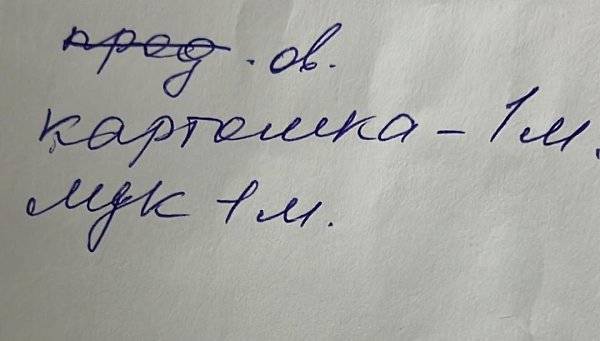 прод . ов.
картошка – 1 м.
лук -1 м.